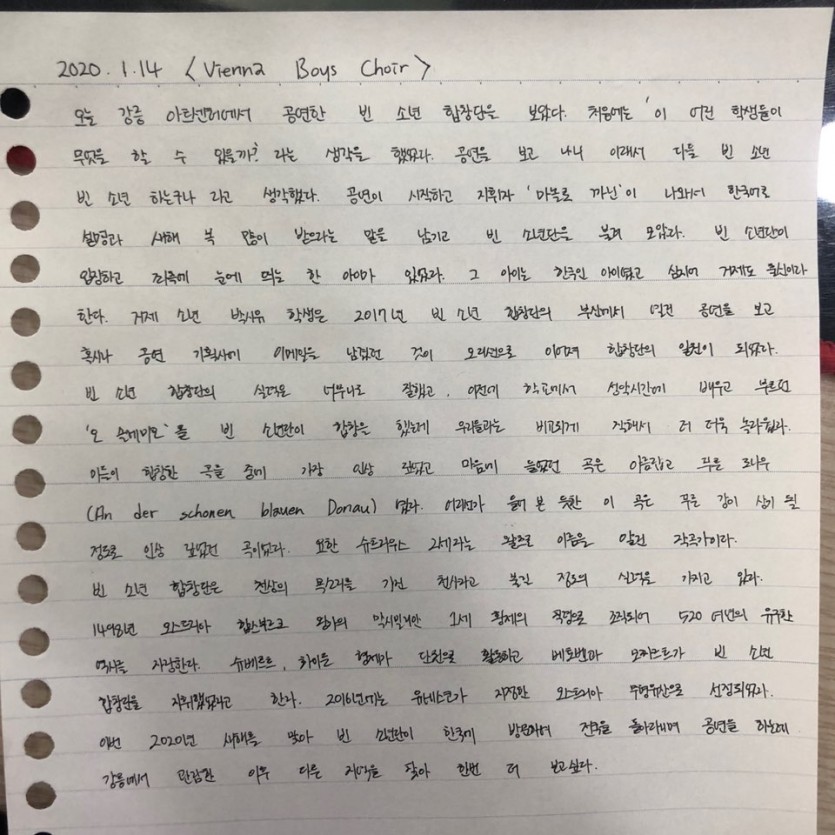 2020. 1. 14 < Vienna Boys Choir >
오늘 강릉 아트센터에서 공연한 빈 소년 합창단을 보았다. 처음에는 '이 어린 학생들이
무엇을 할 수 있을까?' 라는 생각을 했었다. 공연을 보고 나니 이래서 다들 빈 소년
빈 소년 하는구나 라고 생각했다. 공연이 시작하고 지휘자 '마놀로 까닌'이 나와서 한국어로
설명과 새해 복 많이 받으라는 말을 남기고 빈 소년단을 불러 모았다. 빈 소년단이
입장하고 좌측에 눈에 띄는 한 아이가 있었다. 그 아이는 한국인 아이였고 심지어 거제도 출신이라
한다. 거제 소년 박시유 학생은 2017년 빈 소년 합창단의 부산에서 열린 공연을 보고
혹시나 공연 기획사에 이메일을 남겼던 것이 오디션으로 이어져 합창단의 일원이 되었다.
빈 소년 합창단의 실력은 너무나도 잘했고, 이전에 학교에서 성악시간에 배우고 부르던
'오 솔레미오'를 빈 소년단이 합창을 했는데 우리들과는 비교되게 잘해서 더 더욱 놀라웠다.
이들이 합창한 곡들 중에 가장 인상 깊었고 마음에 들었던 곡은 아름답고 푸른 도나우
(An der schonen blauen Donau) 였다. 어디선가 들어 본 듯한 이 곡은 푸른 강이 상기 될
정도로 인상 깊었던 곡이었다. 요한 슈트라우스 2세라는 왈츠로 이름을 알린 작곡가이다.
빈 소년 합창단은 천상의 목소리를 가진 천사라고 불릴 정도의 실력을 가지고 있다.
1498년 오스트리아 합스부르크 왕가의 막시밀리안 1세 황제의 칙령으로 조직되어 520 여년의 유구한
역사를 자랑한다. 슈베르트, 하이든 형제가 단원으로 활동하고 베토벤과 모차르트가 빈 소년
합창단을 지휘했었다고 한다. 2016년에는 유네스코가 지정한 오스트리아 무형유산으로 선정되었다.
이번 2020년 새해를 맞아 빈 소년단이 한국에 방문하여 전국을 돌아다니며 공연을 하는데
강릉에서 관람한 이후 다른 지역을 찾아 한번 더 보고싶다.